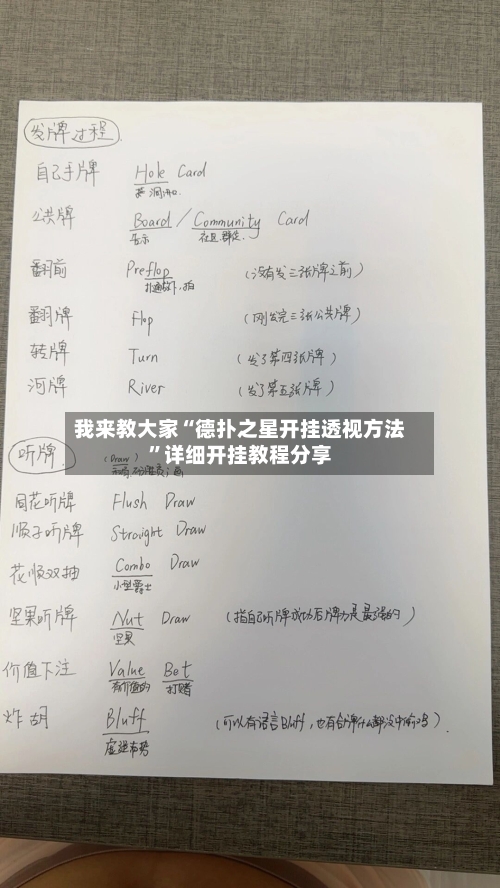 发牌过程
自己手牌 Hole Card
洞
公共牌 Board / Community Card
告示 社区.群体.
翻前 Preflop (没有发三张牌之前)
翻牌 flop (刚发完三张公共牌)
转牌 Turn (发了第四张牌)
河牌 River (发了第五张牌)
我来教大家“德扑之星开挂透视方法
”详细开挂教程分享
听牌 (Draw)
同花听牌 Flush Draw
顺子听牌 Straight Draw
花顺双抽 Combo Draw
小型爵士
坚果听牌 Nut Draw (指自己听牌成功后牌力是最强的)
坚果
价值下注 Value Bet
有价值的 打赌
炸胡 Bluff (可以有语言Bluff,也有
虚张声势